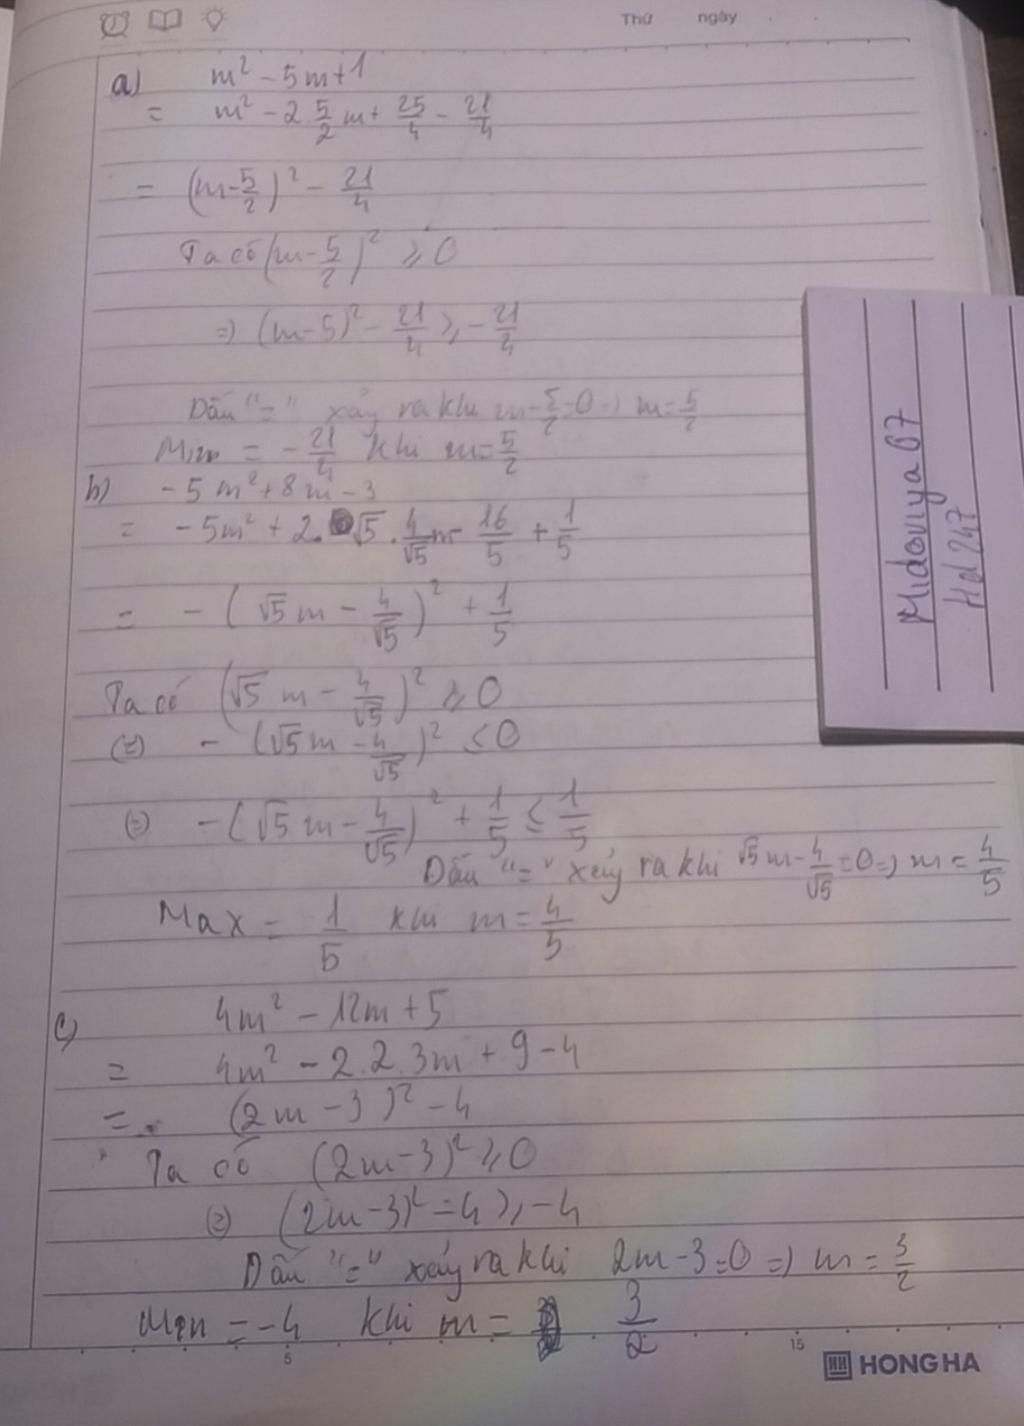 Thứ ngày
a) m² - 5m + 1
= m² - 2 5/2 m + 25/4 - 21/4
= (m - 5/2)² - 21/4
Ta có (m - 5/2)² ≥ 0
=> (m - 5)² - 21/4 ≥ - 21/4
Dấu "=" xảy ra khi m - 5/2 = 0 => m = 5/2
Min = - 21/4 khi m = 5/2
b) - 5m² + 8m - 3
= - 5m² + 2. √5 . 4/√5 m - 16/5 + 1/5
= - (√5 m - 4/√5)² + 1/5
Ta có (√5 m - 4/√5)² ≥ 0
(=) - (√5 m - 4/√5)² ≤ 0
(=) - (√5 m - 4/√5)² + 1/5 ≤ 1/5
Dấu "=" xảy ra khi √5 m - 4/√5 = 0 => m = 4/5
Max = 1/5 khi m = 4/5
c) 4m² - 12m + 5
= 4m² - 2.2.3m + 9 - 4
= (2m - 3)² - 4
Ta có (2m - 3)² ≥ 0
(=) (2m - 3)² = 4 ≥ - 4
Dấu "=" xảy ra khi 2m - 3 = 0 => m = 3/2
Min = - 4 khi m = 3/2
5 15
HONG HA
Midoviya 07
Hd 247